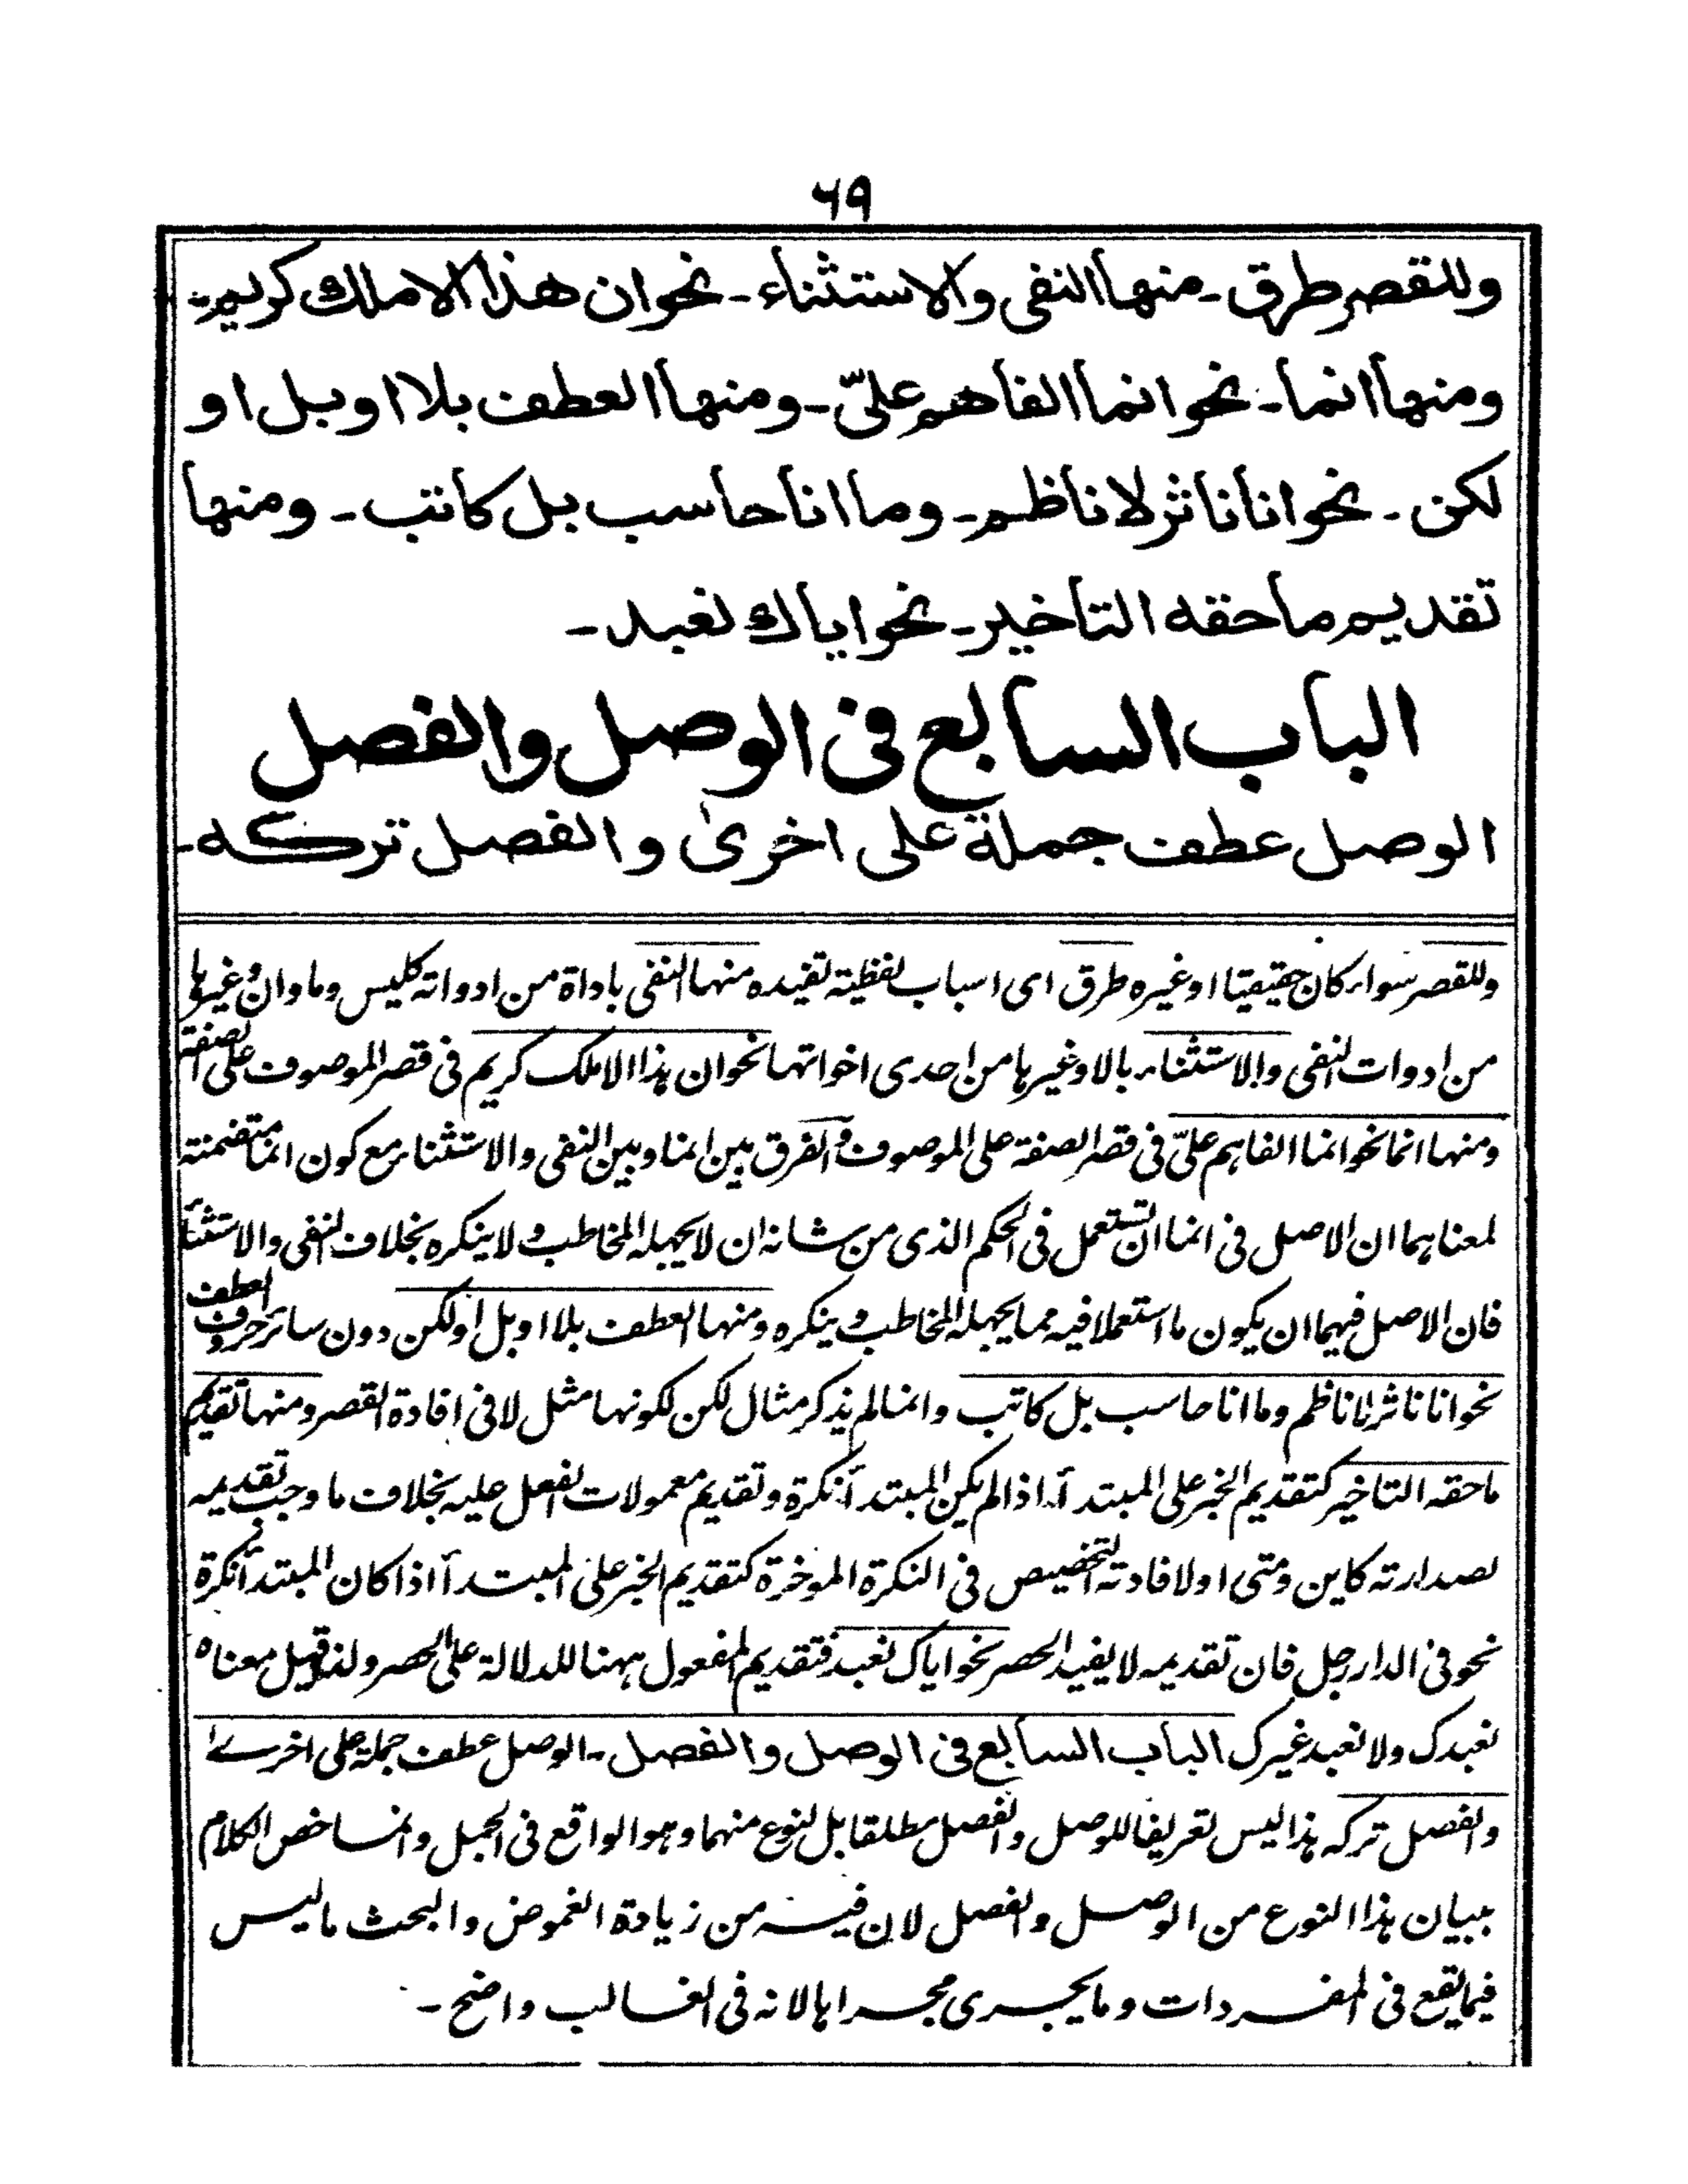 ۶۹
وللقصر طرق - منها النفى والاستثناء - نحو ان هذا الا ملك كريم -
ومنها انما - نحو انما الفاهم علىّ - ومنها العطف بلا او بل او
لكن - نحو انا ناثر لا ناظم - وما انا حاسب بل كاتب - ومنها
تقديم ما حقه التاخير - نحو اياك نعبد -
الباب السابع فى الوصل والفصل
الوصل عطف جملة على اخرىٰ والفصل تركه -
وللقصر سواء كان حقيقيا او غيره طرق اى اسباب لفظية تفيده منها النفى باداة من ادواته كليس وما وان وغيرها
من ادوات النفى والاستثناء بالا وغيرها من احدى اخواتها نحو ان هذا الا ملك كريم فى قصر الموصوف على الصفة
ومنها انما نحو انما الفاهم علىّ فى قصر الصفة على الموصوف والفرق بين انما وبين النفى والاستثناء مع كون انما متضمنة
لمعناهما ان الاصل فى انما ان تستعمل فى الحكم الذى من شانه ان لا يجهله المخاطب ولا ينكره بخلاف النفى والاستثناء
فان الاصل فيهما ان يكون ما استعملا فيه مما يجهله المخاطب وينكره ومنها العطف بلا او بل او لكن دون سائر حروف العطف
نحو انا ناثر لا ناظم وما انا حاسب بل كاتب وانما لم يذكر مثال لكن لكونها مثل لا فى افادة القصر ومنها تقديم
ما حقه التاخير كتقديم الخبر على المبتدأ اذا لم يكن المبتدأ نكرة وتقديم معمولات الفعل عليه بخلاف ما وجب تقديمه
لصدارته كاين ومتى او لافادته التخصيص فى النكرة الموخرة كتقديم الخبر على المبتدأ اذا كان المبتدأ نكرة
نحو فى الدار رجل فان تقديمه لا يفيد الحصر نحو اياك نعبد فتقديم المفعول ههنا للدلالة على الحصر ولذا قيل معناه
نعبدك ولا نعبد غيرك الباب السابع فى الوصل والفصل - الوصل عطف جملة على اخرىٰ
والفصل تركه هذا ليس تعريفا للوصل والفصل مطلقا بل لنوع منهما وهو الواقع فى الجمل وانما خص الكلام
ببيان هذا النوع من الوصل والفصل لان فيه من زيادة الغموض والبحث ما ليس
فيما يقع فى المفردات وما يجرى مجراها لانه فى الغالب واضح -